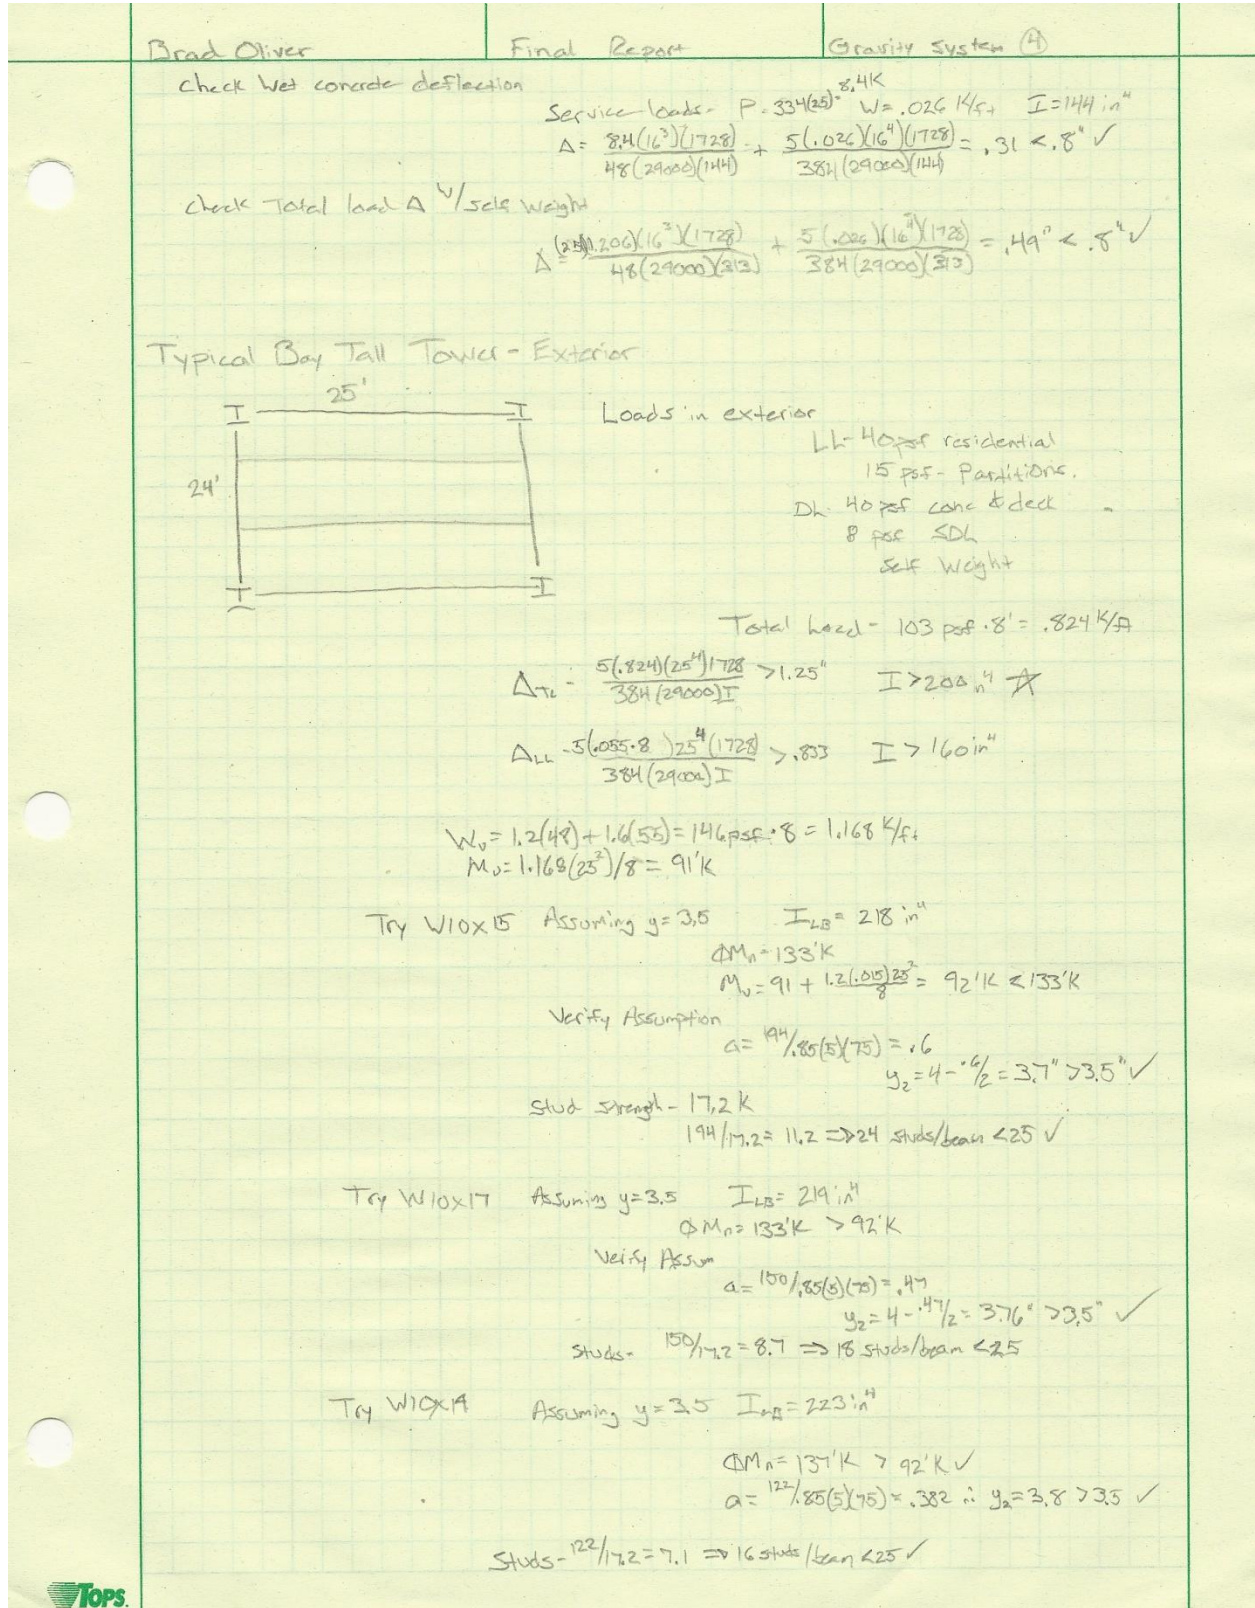 Brad Oliver Final Report Gravity System ④
Check Wet concrete deflection
Service loads- P=.334(25)=8.4K W=.026 K/ft I=144 in⁴
Δ= 8.4(16³)(1728)/48(29000)(144) + 5(.026)(16⁴)(1728)/384(29000)(144) = .31 < .8" ✓
Check Total load Δ w/self Weight
Δ= (25)(1.206)(16³)(1728)/48(29000)(313) + 5(.026)(16⁴)(1728)/384(29000)(313) = .49" < .8" ✓
Typical Bay Tall Tower - Exterior
25'
24'
Loads in exterior
LL- 40psf residential
15 psf- Partitions.
DL- 40 psf conc & deck
8 psf SDL
Self Weight
Total Load - 103 psf·8' = .824 K/ft
Δ_TL = 5(.824)(25⁴)1728/384(29000)I > 1.25" I > 200in⁴ ☆
Δ_LL = 5(.055·8)25⁴(1728)/384(29000)I > .833 I > 160in⁴
Wᵤ= 1.2(48) + 1.6(55) = 146psf·8 = 1.168 K/ft
Mᵤ= 1.168(25²)/8 = 91'K
Try W10x15 Assuming y=3.5 I_LB= 218 in⁴
ΦMₙ=133'K
Mᵤ= 91 + 1.2(.015)25²/8 = 92'K < 133'K
Verify Assumption
a= 194/.85(5)(75) = .6
y₂=4-.6/2 = 3.7" >3.5" ✓
Stud Strength- 17.2 K
194/17.2= 11.2 => 24 studs/beam <25 ✓
Try W10x17 Assuming y=3.5 I_LB= 219 in⁴
ΦMₙ= 133'K > 92'K
Verify Assum
a= 150/.85(5)(75) = .47
y₂= 4-.47/2 = 3.76" >3.5" ✓
Studs- 150/17.2 = 8.7 => 18 studs/beam <25
Try W10x19 Assuming y=3.5 I_LB= 223 in⁴
ΦMₙ= 137'K > 92'K ✓
a= 122/.85(5)(75) = .382 ∴ y₂= 3.8 >3.5 ✓
Studs- 122/17.2= 7.1 => 16 studs/beam <25 ✓
TOPS.